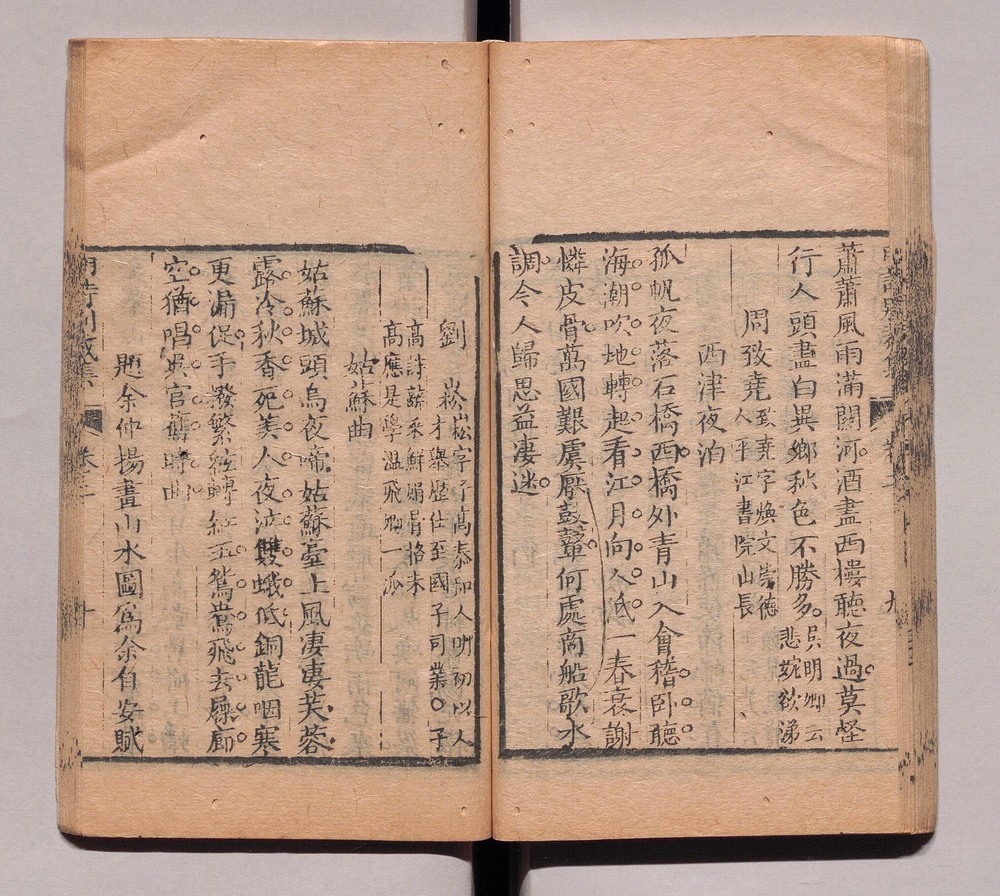 蕭蕭風雨滿關河酒盡西樓聽夜過莫怪
行人頭盡白異鄉秋色不勝多吳明卿云
悲婉欲涕
周致堯致堯字煥文崇德
人平江書院山長
西津夜泊
孤帆夜落石橋西橋外青山入會稽臥聽
海潮吹地轉起看江月向人低一春衰謝
憐皮骨萬國艱虞厭鼓鼙何處商船歌水
調令人歸思益凄迷
劉崧崧字子高泰和人明初以人
才舉歷仕至國子司業○子
高詩辭采鮮媚骨格未
高應是學溫飛卿一派
姑蘇曲
姑蘇城頭烏夜啼姑蘇臺上風凄凄芙蓉
露冷秋香死美人夜泣雙蛾低銅龍咽寒
更漏促手撥繁絃轉紅玉鴛鴦飛去屧廊
空猶唱吳宮舊時曲
題余仲揚畫山水圖爲余自安賦
明詩別裁集
卷二
十
九